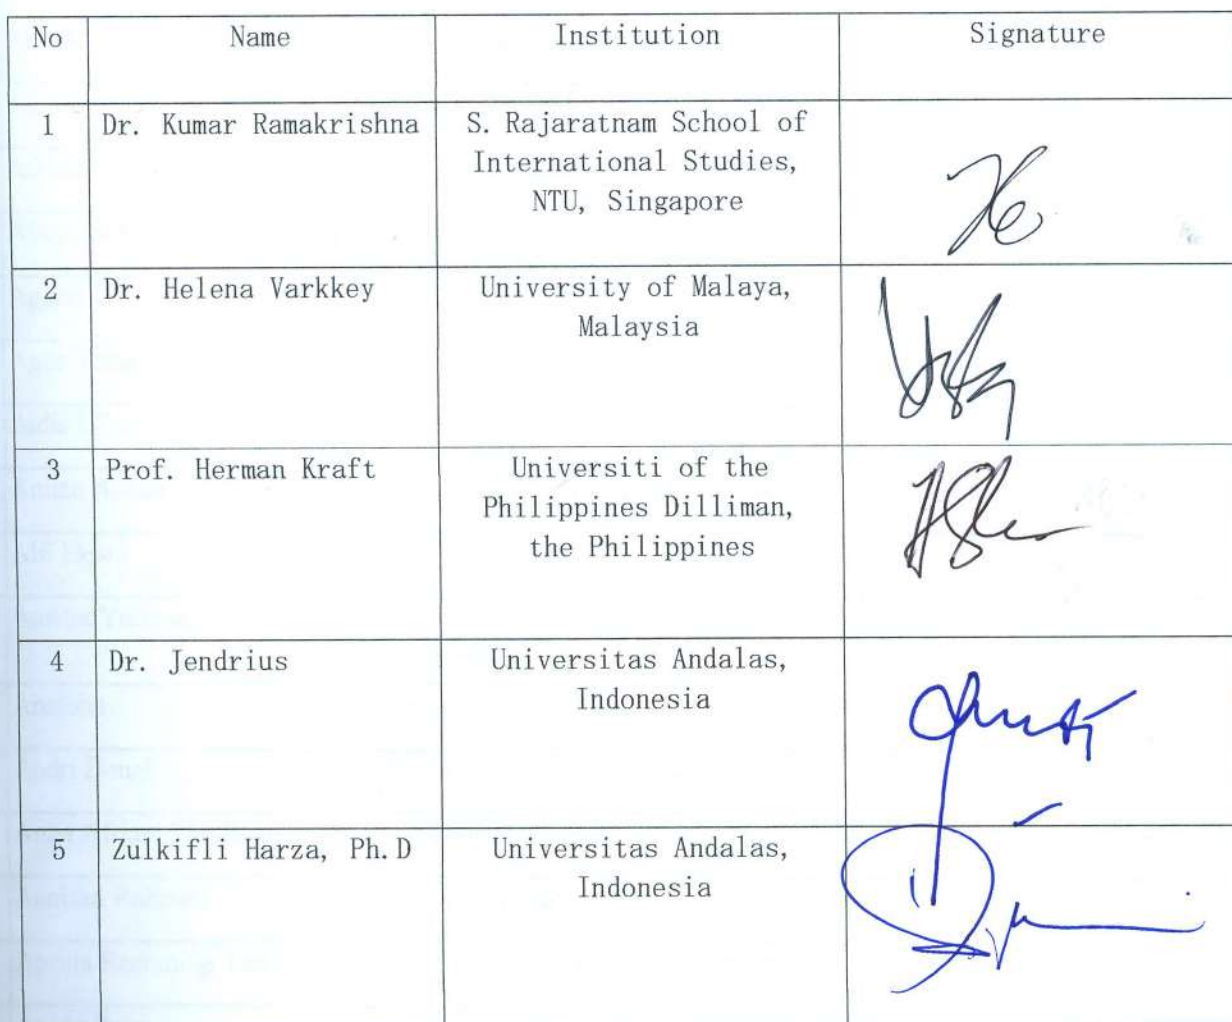 No Name Institution Signature
1 Dr. Kumar Ramakrishna S. Rajaratnam School of
International Studies,
NTU, Singapore
2 Dr. Helena Varkkey University of Malaya,
Malaysia
3 Prof. Herman Kraft Universiti of the
Philippines Dilliman,
the Philippines
4 Dr. Jendrius Universitas Andalas,
Indonesia
5 Zulkifli Harza, Ph.D Universitas Andalas,
Indonesia